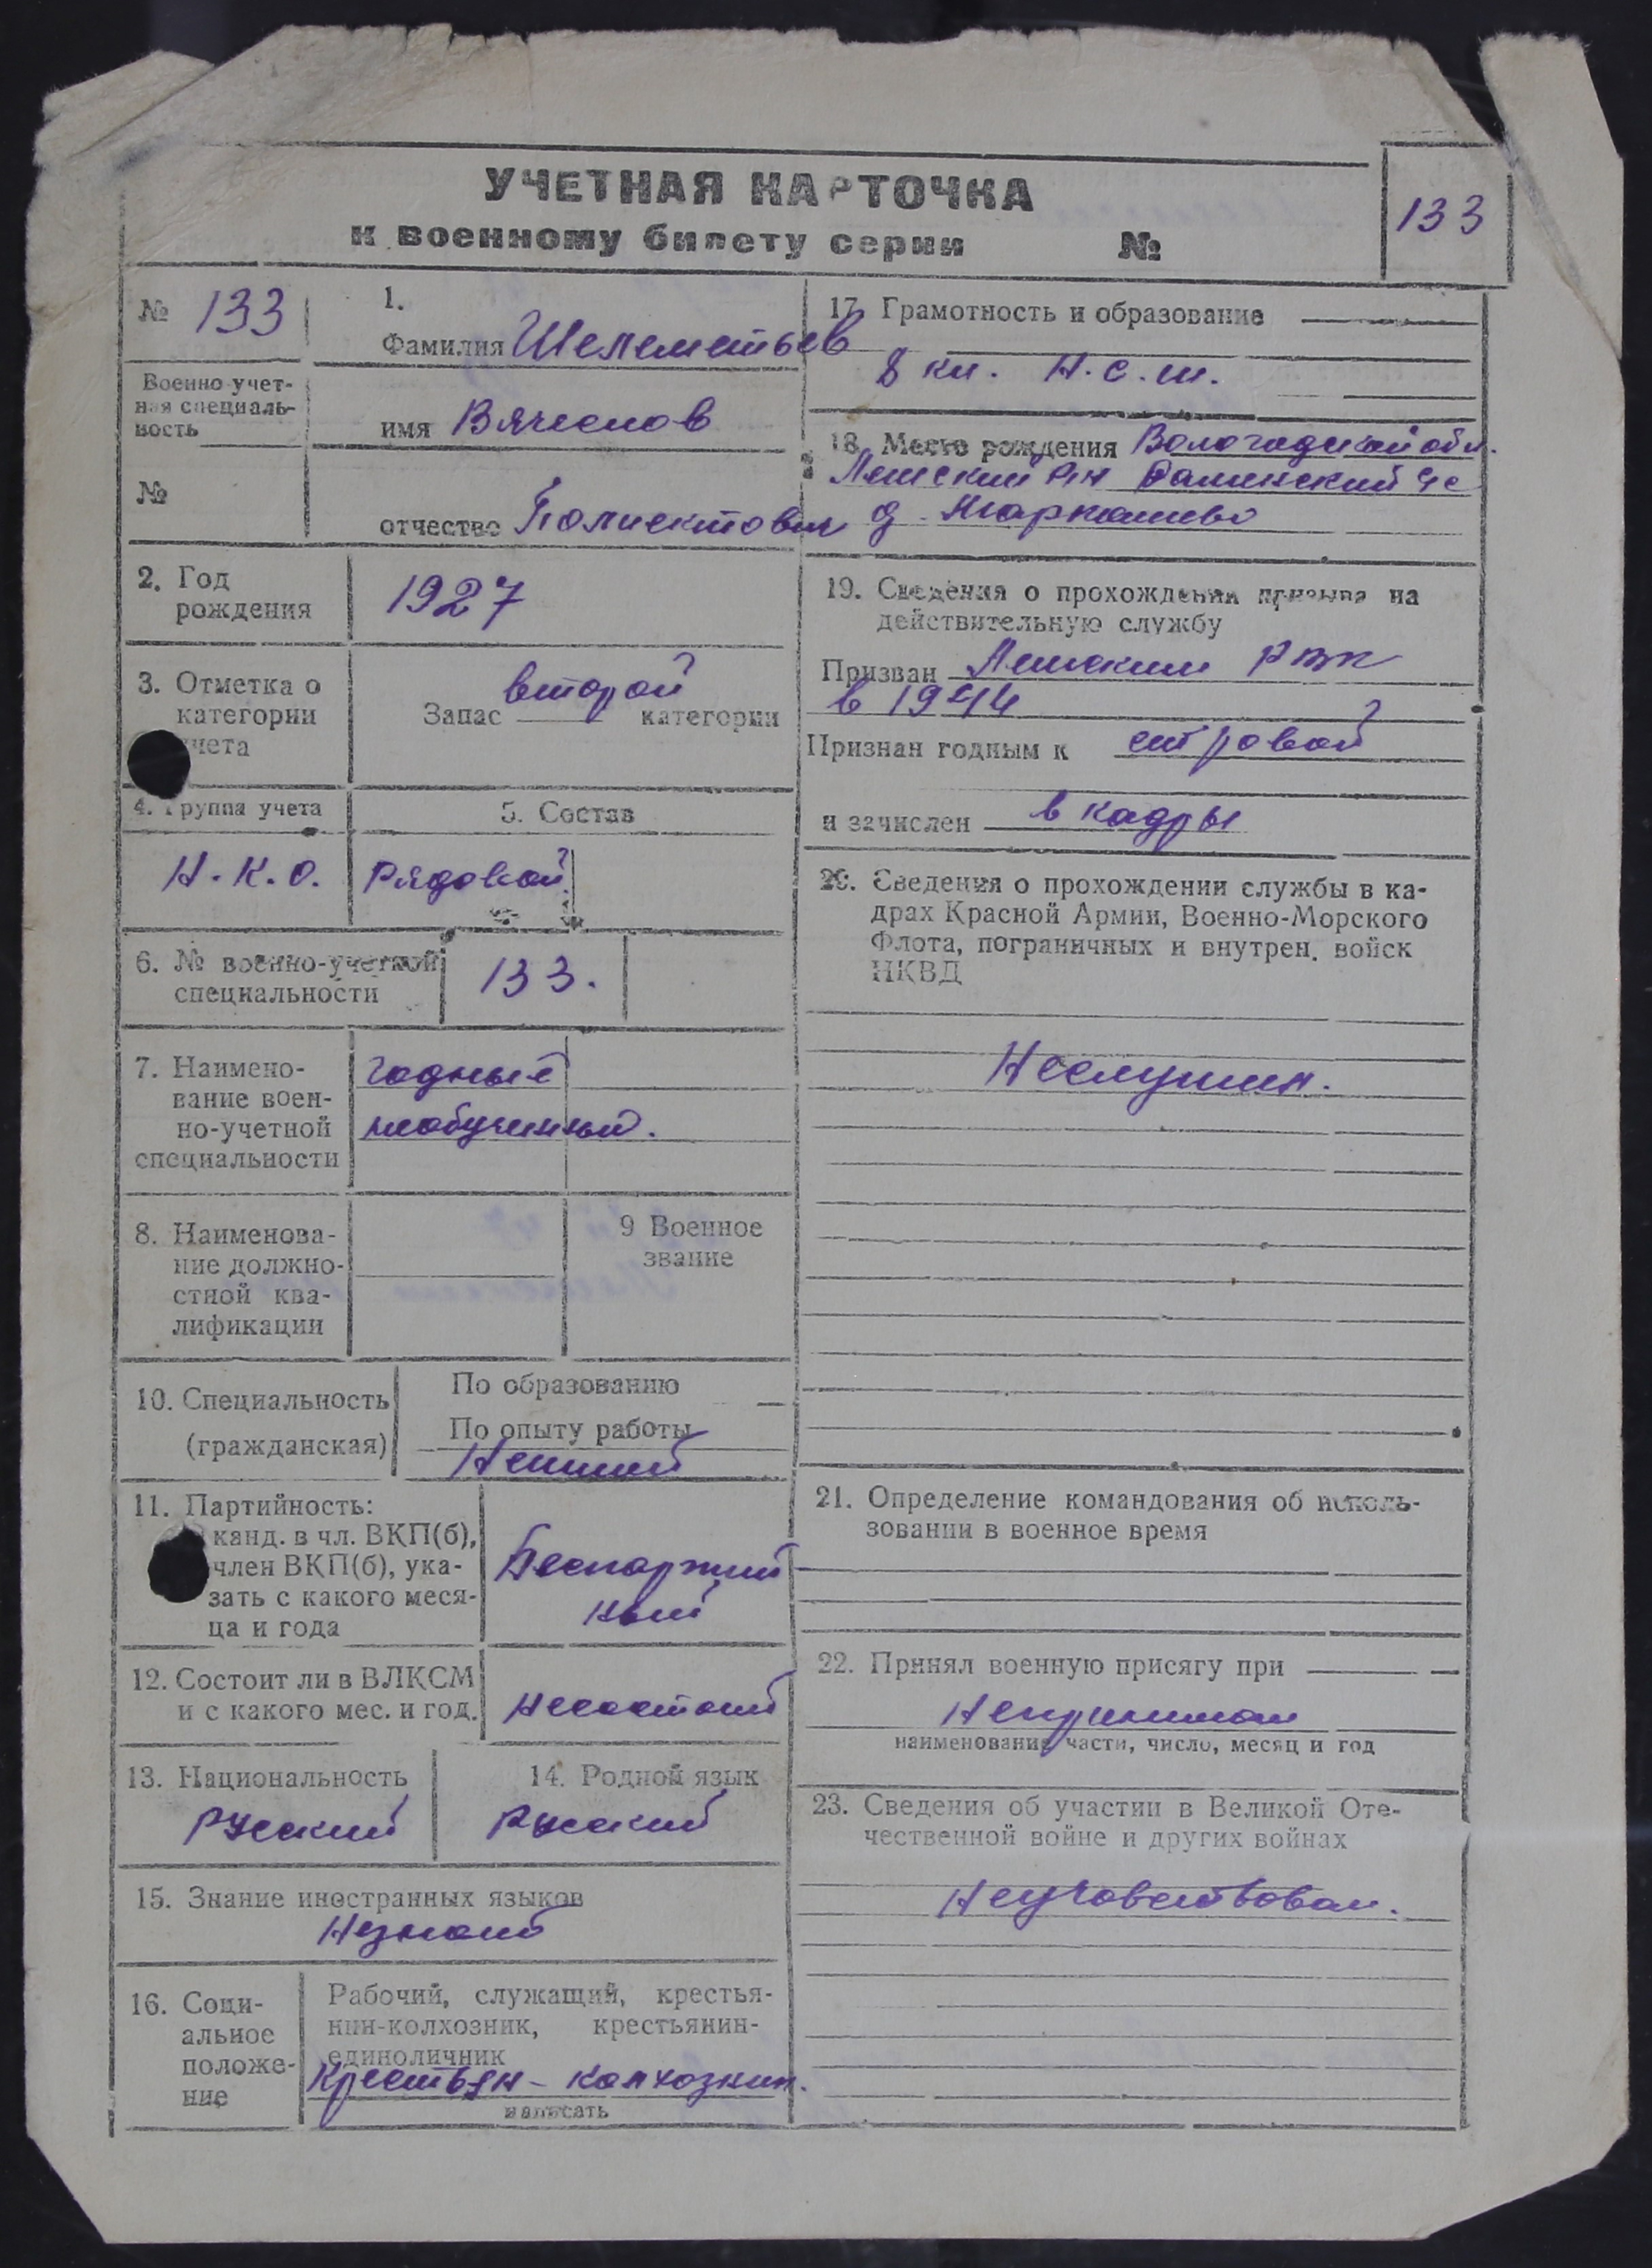 УЧЕТНАЯ КАРТОЧКА
к военному билету серии №
133
№ 133
Военно-учет-
ная специаль-
ность
№
1.
Фамилия Шелементьев
имя Вячеслов
отчество Полиектович
2. Год
рождения
1927
3. Отметка о
категории
учета
Запас второй категории
4. Группа учета
Н.К.О.
5. Состав
Рядовой
6. № военно-учетной
специальности
133.
7. Наимено-
вание воен-
но-учетной
специальности
годный
необученный.
8. Наименова-
ние должно-
стной ква-
лификации
9 Военное
звание
10. Специальность
(гражданская)
По образованию
По опыту работы
11. Партийность:
канд. в чл. ВКП(б),
член ВКП(б), ука-
зать с какого меся-
ца и года
Беспартий
ный
12. Состоит ли в ВЛКСМ
и с какого мес. и год.
Несостоит
13. Национальность
Русский
14. Родной язык
Русский
15. Знание иностранных языков
Незнает
16. Соци-
альное
положе-
ние
Рабочий, служащий, крестья-
нин-колхозник, крестьянин-
единоличник
Крестьян-колхозник.
написать
17. Грамотность и образование
8 кл. Н.с.ш.
18. Место рождения Вологодской обл.
Лежский р-н с/с
д.
19. Сведения о прохождении призыва на
действительную службу
Призван Лежским РВК
в 1944
Признан годным к строевой
и зачислен в кадры
20. Сведения о прохождении службы в ка-
драх Красной Армии, Военно-Морского
Флота, пограничных и внутрен. войск
НКВД
Неслужил.
21. Определение командования об исполь-
зовании в военное время
22. Принял военную присягу при
Непринимал
наименование части, число, месяц и год
23. Сведения об участии в Великой Оте-
чественной войне и других войнах
Неучавствовал.